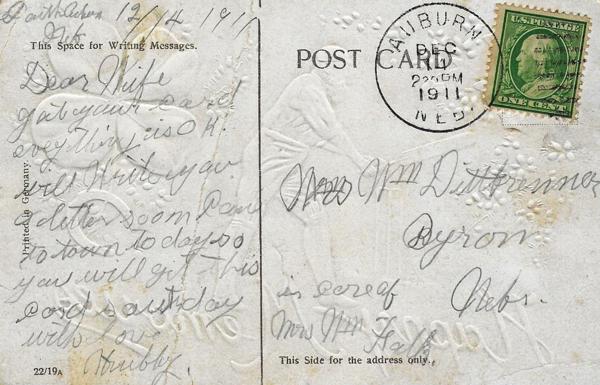 12/14 1911
Neb
This Space for Writing Messages.
Dear Wife
got your card
everything is O.K.
will write you
a letter soon I came
to town to day so
you will get this
card saturday
with love
Hubby.
22/19A
Printed in Germany.
POST CARD
AUBURN
DEC
14
1911
NEB.
U.S. POSTAGE
ONE CENT
Mrs Wm Dittbrenner
Byron
Nebr.
in care of
Mrs Wm Hall
This Side for the address only.